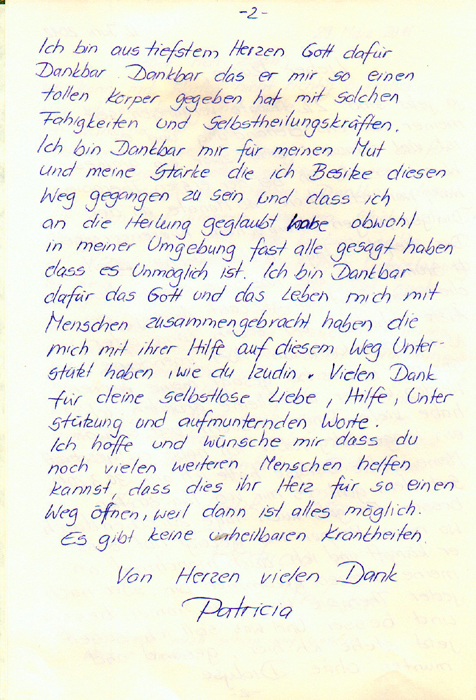 -2-
Ich bin aus tiefstem Herzen Gott dafür
Dankbar. Dankbar das er mir so einen
tollen Körper gegeben hat mit solchen
Fähigkeiten und Selbstheilungskräften.
Ich bin Dankbar mir für meinen Mut
und meine Stärke die ich Besitze diesen
Weg gegangen zu sein und dass ich
an die Heilung geglaubt habe obwohl
in meiner Umgebung fast alle gesagt haben
dass es Unmöglich ist. Ich bin Dankbar
dafür das Gott und das Leben mich mit
Menschen zusammengebracht haben die
mich mit ihrer Hilfe auf diesem Weg Unter-
stützt haben, wie du Izudin. Vielen Dank
für deine selbstlose Liebe, Hilfe, Unter
stützung und aufmunternden Worte.
Ich hoffe und wünsche mir dass du
noch vielen weiteren Menschen helfen
kannst, dass dies ihr Herz für so einen
Weg öffnen, weil dann ist alles möglich.
Es gibt keine unheilbaren Krankheiten.
Von Herzen vielen Dank
Patricia